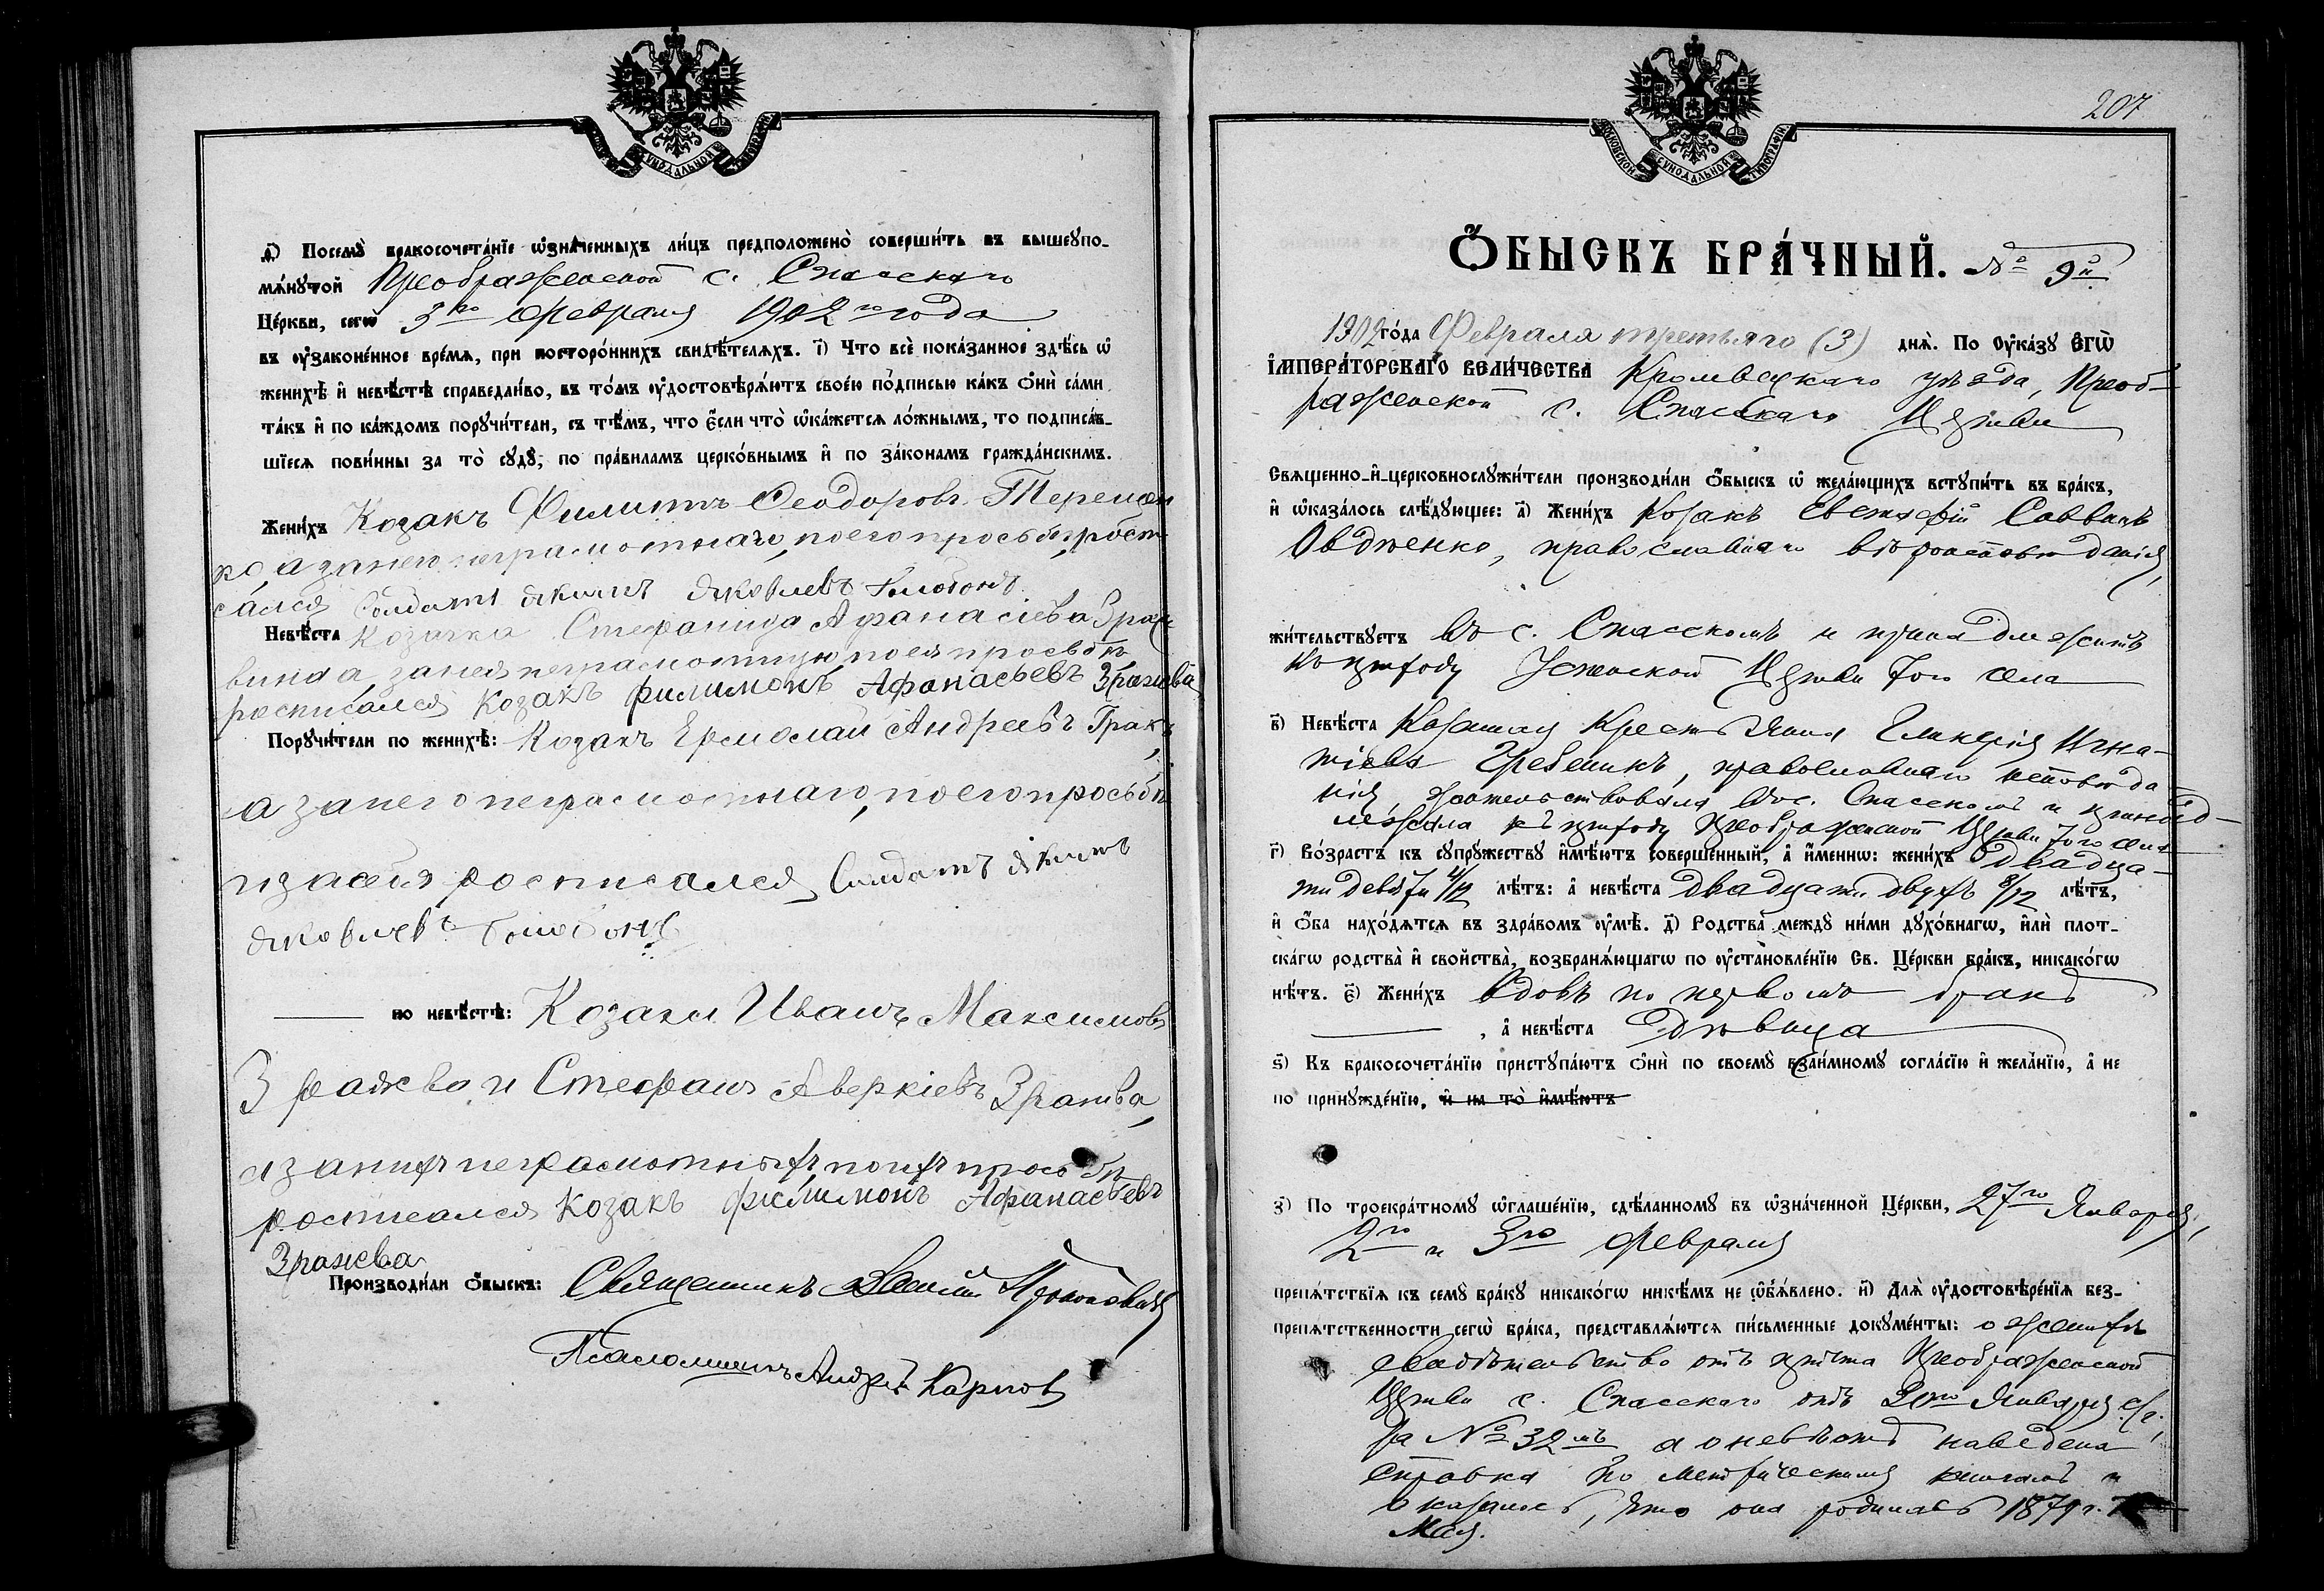 МОСКОВСКОЙ СУНОДАЛЬНОЙ ТИПОГРАФІИ
ѳ҃) Посемꙋ̀ бракосочета́нїе ѡ҆зна́ченныхъ ли́цъ предположено̀ соверши́ть въ вышеꙋпо-
мѧ́нꙋтой Преображенской с. Спасскаго
Це́ркви, сегѡ̀ 3го Февраля 1902го года
въ ᲂу҆законе́нное вре́мѧ, при посторо́ннихъ свидѣ́телѧхъ. і҃) Что всѐ пока́занное здѣ́сь ѡ҆
женихѣ̀ и҆ невѣ́стѣ справедли́во, въ то́мъ ᲂу҆достовѣрѧ́ютъ свое́ю по́дписью ка́къ ѻ҆нѝ са́ми
та́къ и҆ по ка́ждомъ порꙋчи́тели, съ тѣ́мъ, что є҆́сли что̀ ѡ҆ка́жетсѧ ло́жнымъ, то подписа́в-
шїесѧ пови́нны за то̀ сꙋдꙋ̀, по пра́виламъ церко́внымъ и҆ по зако́намъ гражда́нскимъ.
Жени́хъ Козакъ Филиппъ Феодоровъ
а занего неграмотнаго, поего прозьбѣ рост-
сался Солдатъ Якимъ Яковлевъ Голобокъ
Невѣ́ста Козачка Стефанида Афанасіева
а занея неграмотную поея прозьбѣ
росписался Козакъ Филимонъ Афанасьевъ Зражева
Порꙋчи́тели по женихѣ̀: Козакъ Ермолай Андреевъ Гракъ,
а занего неграмотнаго, поего прозьбѣ
росписался Солдатъ Якимъ
Яковлевъ Голобокъ
по невѣ́стѣ: Козаки Иванъ Максимовъ
Зражева и Стефанъ Аверкіевъ Зражева,
а заних неграмотныхъ, поихъ прозьбѣ
росписался Козакъ Филимонъ Афанасьевъ
Зражева
Производи́ли ѻ҆́быскъ: Священникъ
Псаломщикъ Андрей Карпов
207
МОСКОВСКОЙ СУНОДАЛЬНОЙ ТИПОГРАФІИ
Ѻ҆́БЫСКЪ БРА́ЧНЫЙ. № 9й
1902 го́да Февраля третьяго (3) днѧ̀. По Оу҆ка́зꙋ Є҆ГѠ̀
І҆МПЕРА́ТОРСКАГО ВЕЛИ́ЧЕСТВА Кролевецкаго уѣзда, Преоб-
раженской с. Спасскаго Церкви
Свѧще́нно-и҆-церковнослꙋжи́тели производи́ли ѻ҆́быскъ ѡ҆ жела́ющихъ вступи́ть въ бра́къ,
и҆ ѡ҆каза́лось слѣ́дꙋющее: а҃) Жени́хъ Козакъ Евстафій Саввинъ
Овдѣенко, православнаго вѣроисповѣданія,
жи́тельствꙋетъ въ с. Спасскомъ и принадлежитъ
къ приходу Успенской Церкви того села
в҃) Невѣ́ста Козачка Гликерія Игна-
тіева Гребеникъ, православнаго исповѣда-
нія, жительствовала въ с. Спасскомъ и принад-
лежала къ приходу Преображенской Церкви того села
г҃) Во́зрастъ къ сꙋпрꙋ́жествꙋ и҆мѣ́ютъ соверше́нный, а҆ и҆́меннѡ: жени́хъ двадца-
ти девяти 4/12 лѣ́тъ: а҆ невѣ́ста двадцати двухъ 8/12 лѣ́тъ,
и҆ ѻ҆́ба нахо́дѧтсѧ въ здра́вомъ ᲂу҆мѣ̀. д҃) Родства̀ междꙋ̀ ни́ми дꙋхо́внагѡ, и҆лѝ плот-
ска́гѡ родства̀ и҆ свойства̀, возбранѧ́ющагѡ по ᲂу҆становле́нїю Св. Це́ркви бра́къ, никако́гѡ
нѣ́тъ. є҃) Жени́хъ вдовъ по первомъ бракѣ
, а҆ невѣ́ста дѣвица
ѕ҃) Къ бракосочета́нїю пристꙋпа́ютъ ѻ҆нѝ по своемꙋ̀ взаи́мномꙋ согла́сїю и҆ жела́нїю, а҆ не
по принꙋжде́нїю, и҆ на то̀ и҆мѣ́ютъ
з҃) По троекра́тномꙋ ѡ҆глаше́нїю, сдѣ́ланномꙋ въ ѡ҆зна́ченной Це́ркви, 27го Января,
2го и 3го Февраля
препѧ́тствїѧ къ семꙋ̀ бра́кꙋ никако́гѡ никѣ́мъ не ѡ҆б̾ѧ́влено. и҃) Длѧ̀ ᲂу҆достовѣре́нїѧ без-
препѧ́тственности сегѡ̀ бра́ка, представлѧ́ютсѧ пи́сьменные докꙋме́нты: о женихѣ
свидѣтельство отъ причта Преображенской
Церкви с. Спасскаго отъ 20го Января с/г.
за № 32мъ, а о невѣстѣ наведена
справка по метрическимъ книгамъ и
оказалось, что она родилась 1879 г.
Мая.